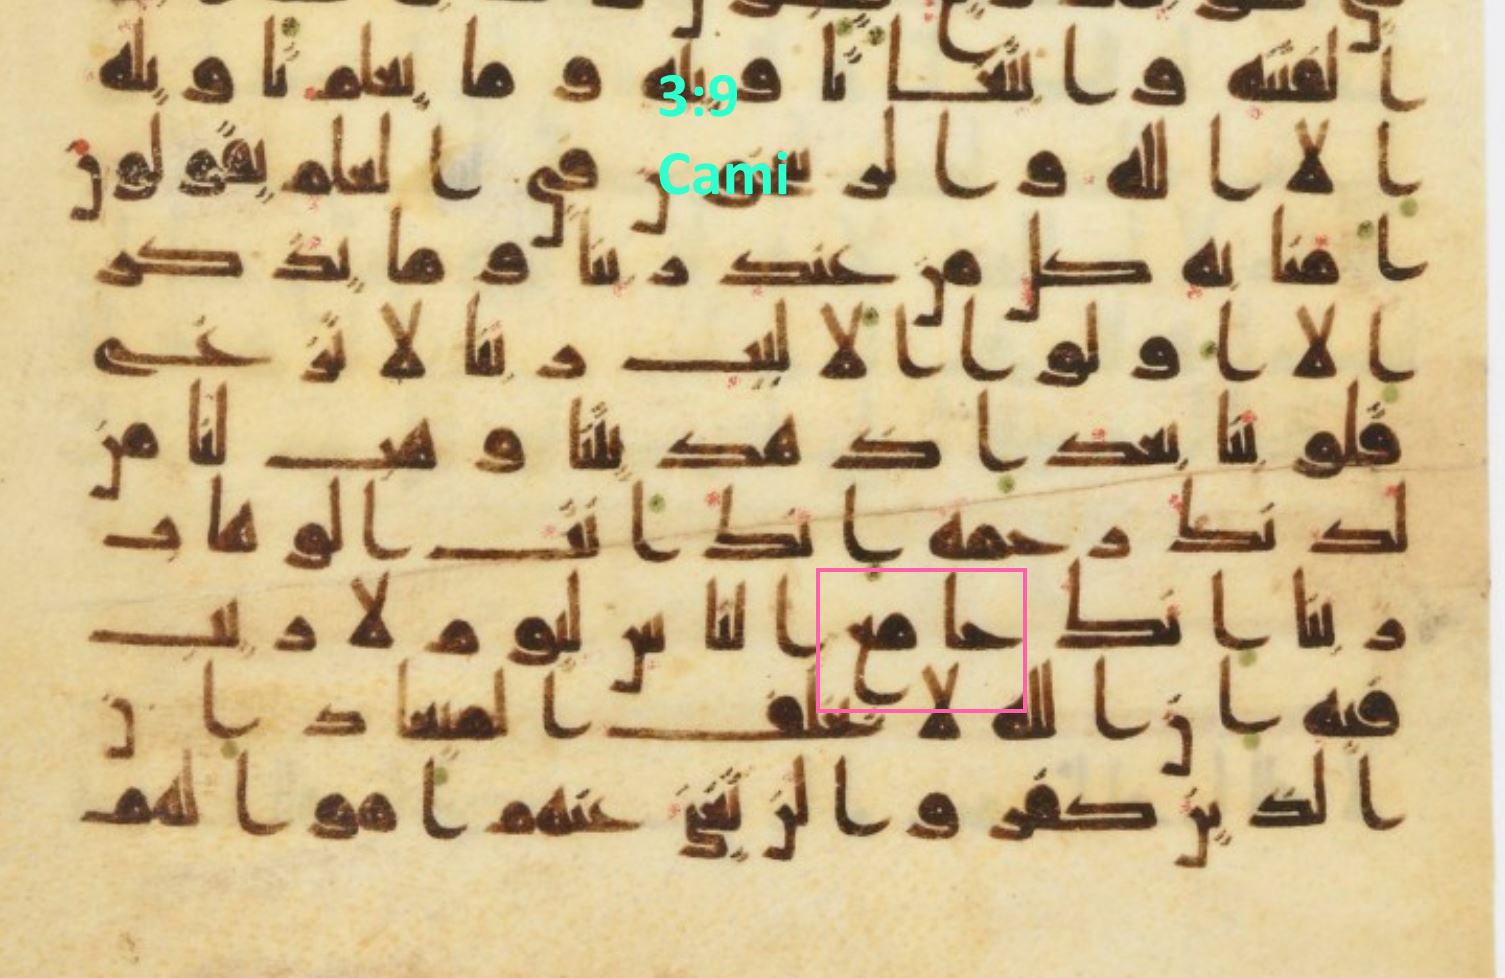 الفتنه وابتغا تاويله وما يعلم تاويله
3:9
الا الله والرسخون في العلم يقولون
Cami
امنا به كل من عند ربنا وما يذكر
الا اولوا الالبب ربنا لا تزغ
قلوبنا بعد اذ هديتنا وهب لنا من
لدنك رحمه انك انت الوهاب
ربنا انك جامع الناس ليوم لا ريب
فيه ان الله لا يخلف الميعاد ان
الذين كفروا لن تغني عنهم امولهم